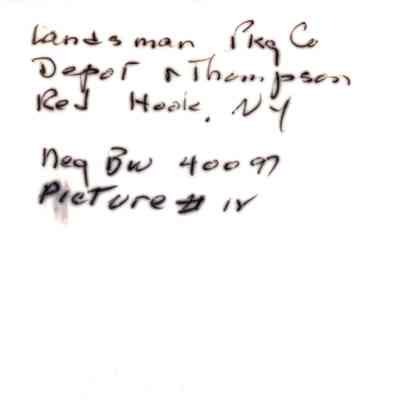 Landsman Pkg Co
Depot & Thompson
Red Hook, NY
Neg BW 40097
Picture # IV